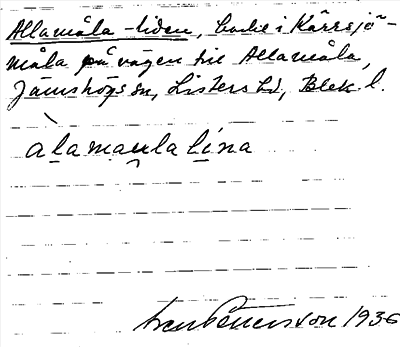 Allamåla-liden, backe i Kärrsjö-
måla på vägen till Allamåla,
Jämshögs sn, Listers hd, Blek. l.
alamaulalina
Pettersson 1936